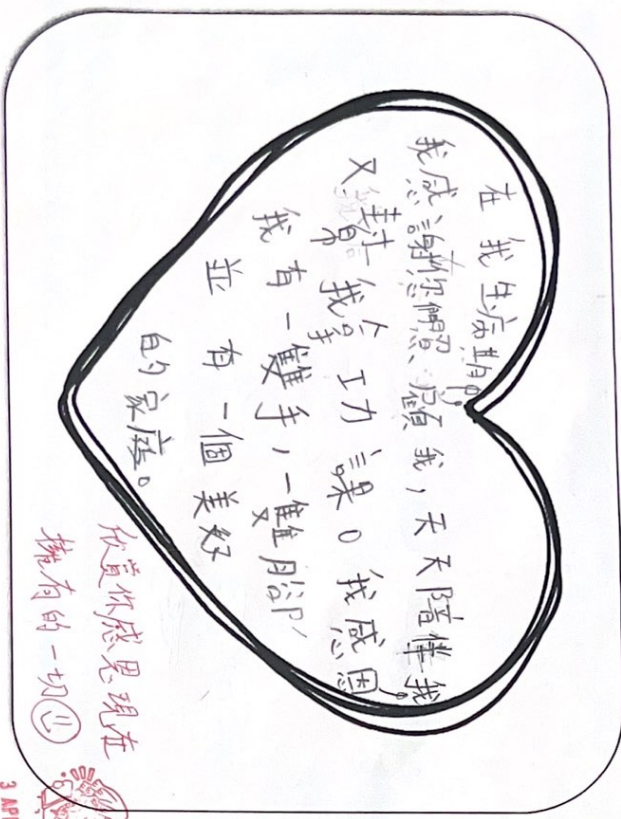 在我生病期間,
我感謝您們照顧我,天天陪伴我,
又幫我拿功課。我感恩
我有一雙手,一雙腳,
並有一個美好
的家庭。
欣賞你感恩現在
擁有的一切
3 APR